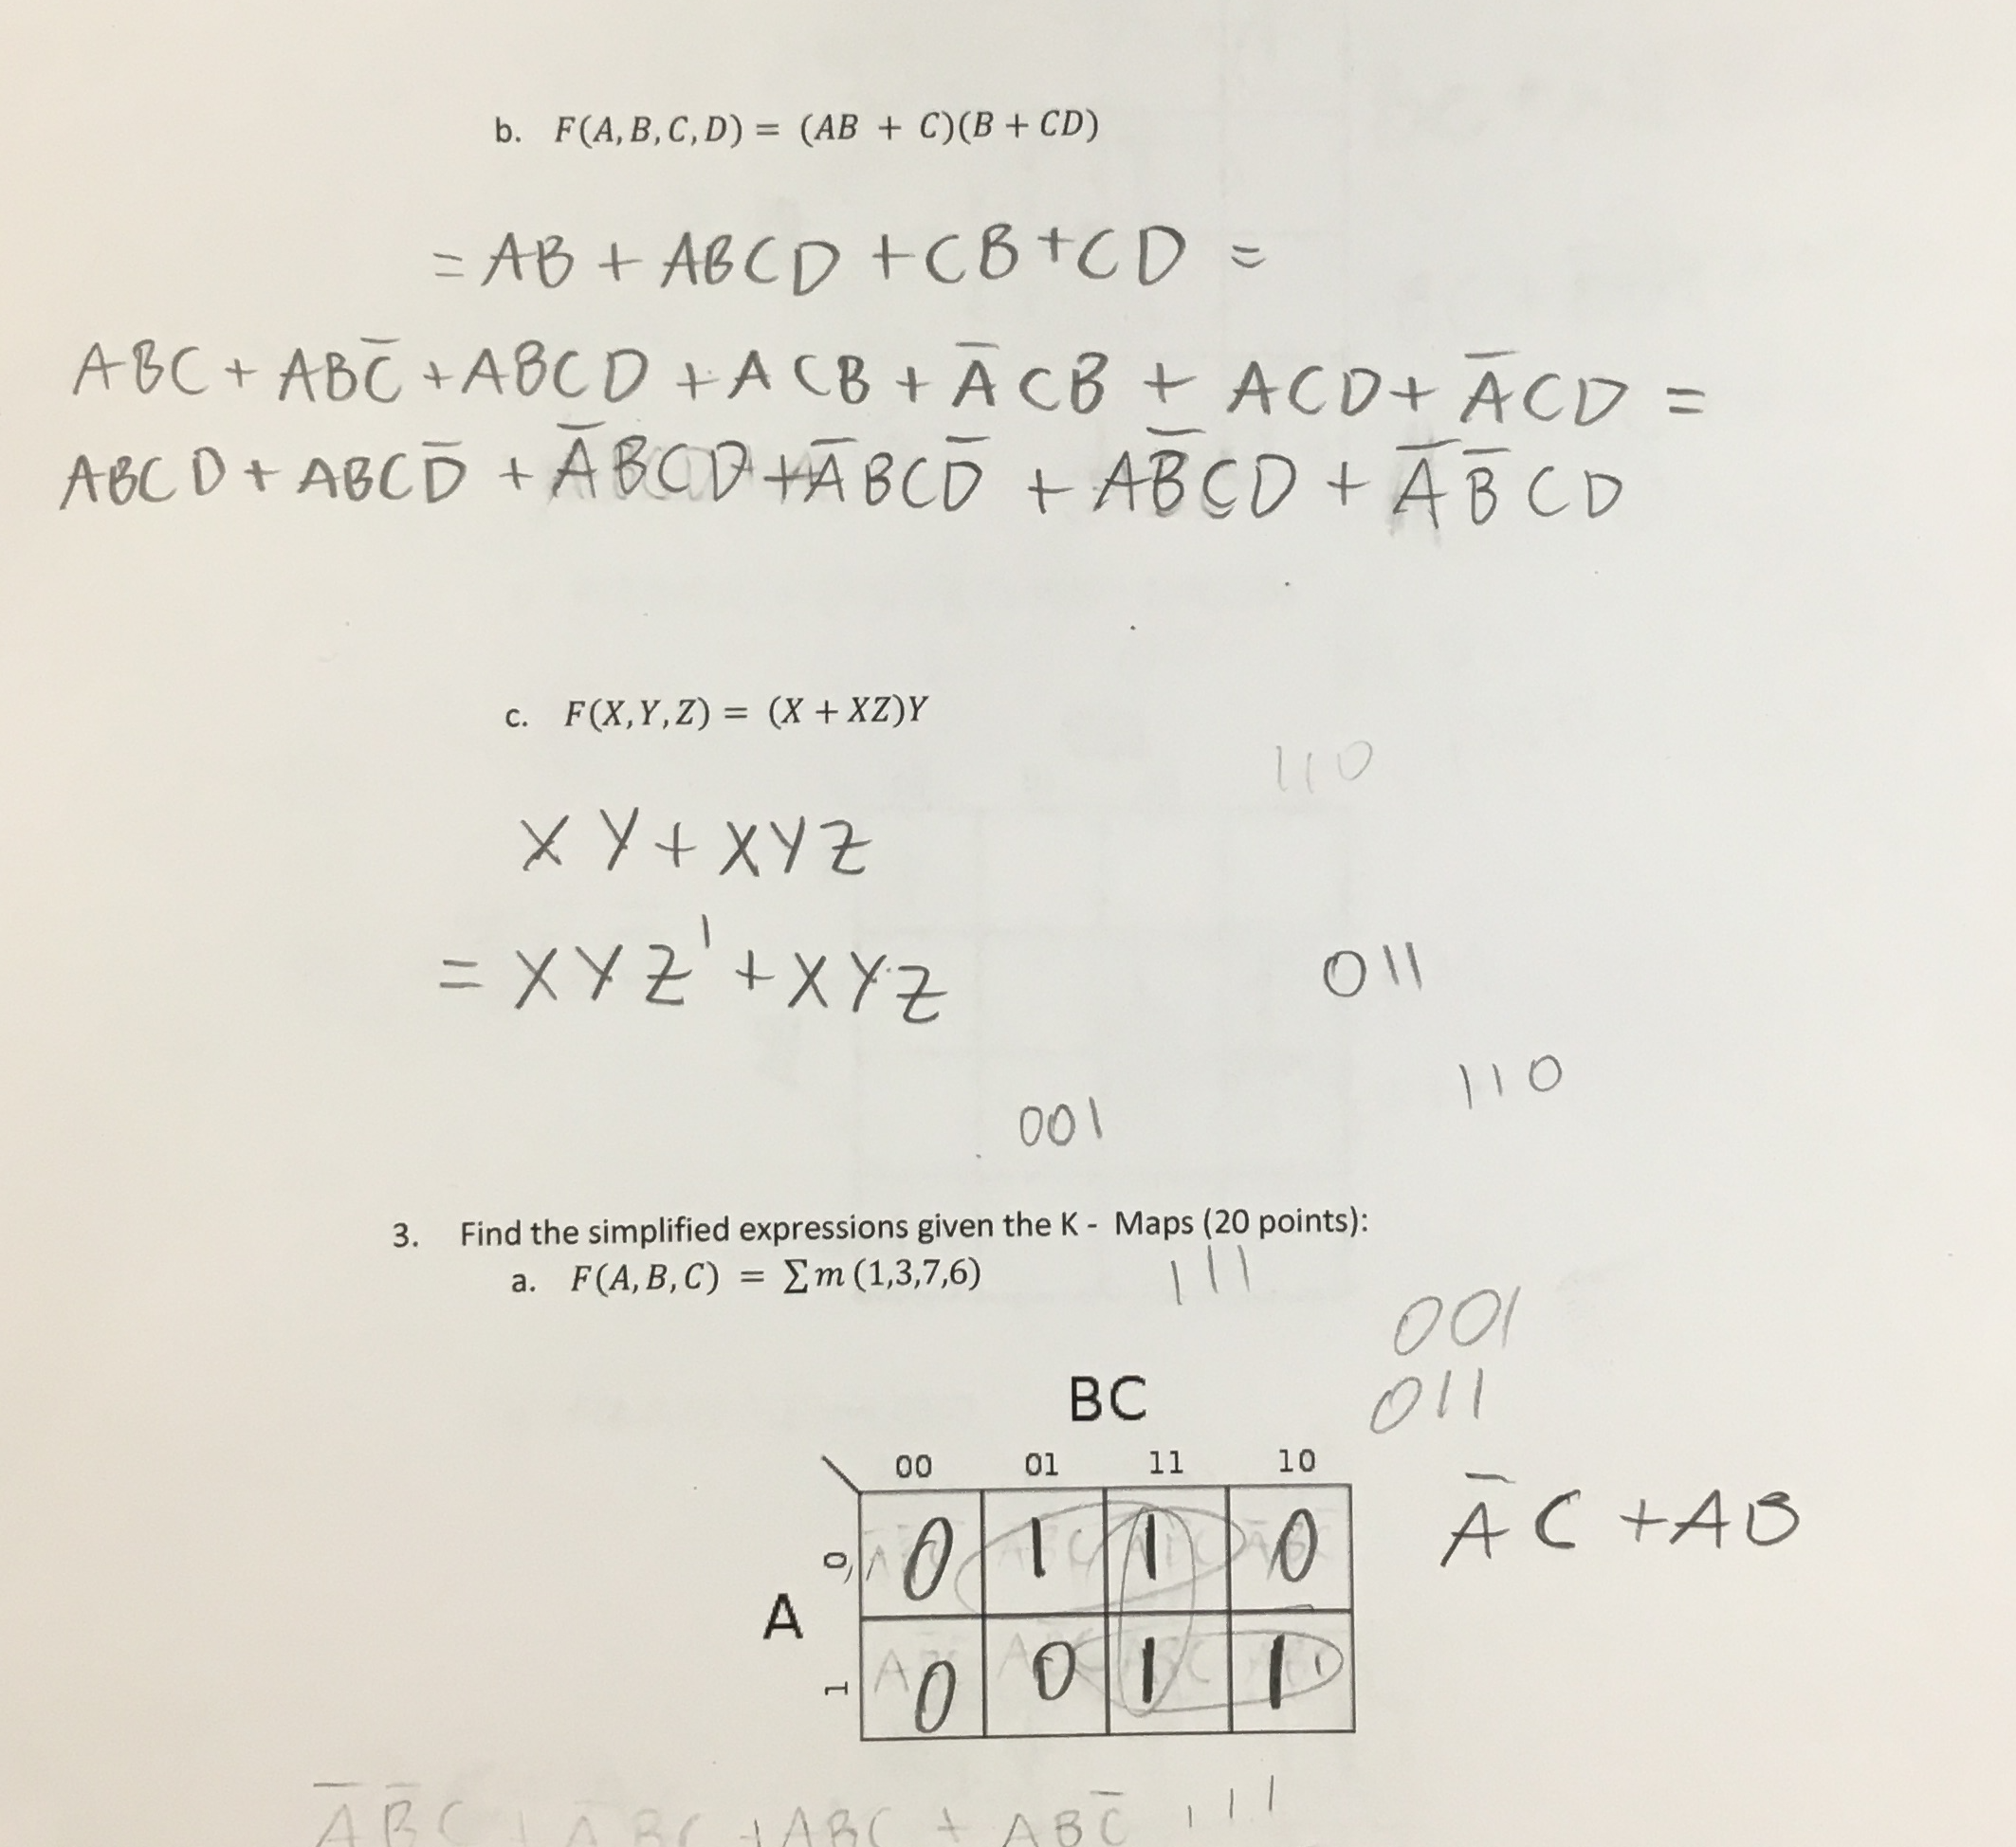 b. F(A,B,C,D) = (AB + C)(B + CD)
= AB + ABCD + CB + CD =
ABC + ABC̅ + ABCD + ACB + A̅CB + ACD + A̅CD =
ABCD + ABCD̅ + A̅BCD + A̅BCD̅ + AB̅CD + A̅B̅CD
c. F(X,Y,Z) = (X + XZ)Y
110
XY + XYZ
= XYZ' + XYZ
011
110
001
3. Find the simplified expressions given the K - Maps (20 points):
a. F(A,B,C) = ∑m (1,3,7,6)
111
001
011
BC
00 01 11 10
A̅C + AB
0 0 1 1 0
A
1 0 0 1 1
A̅B̅C + A̅BC + ABC + ABC̅ 111